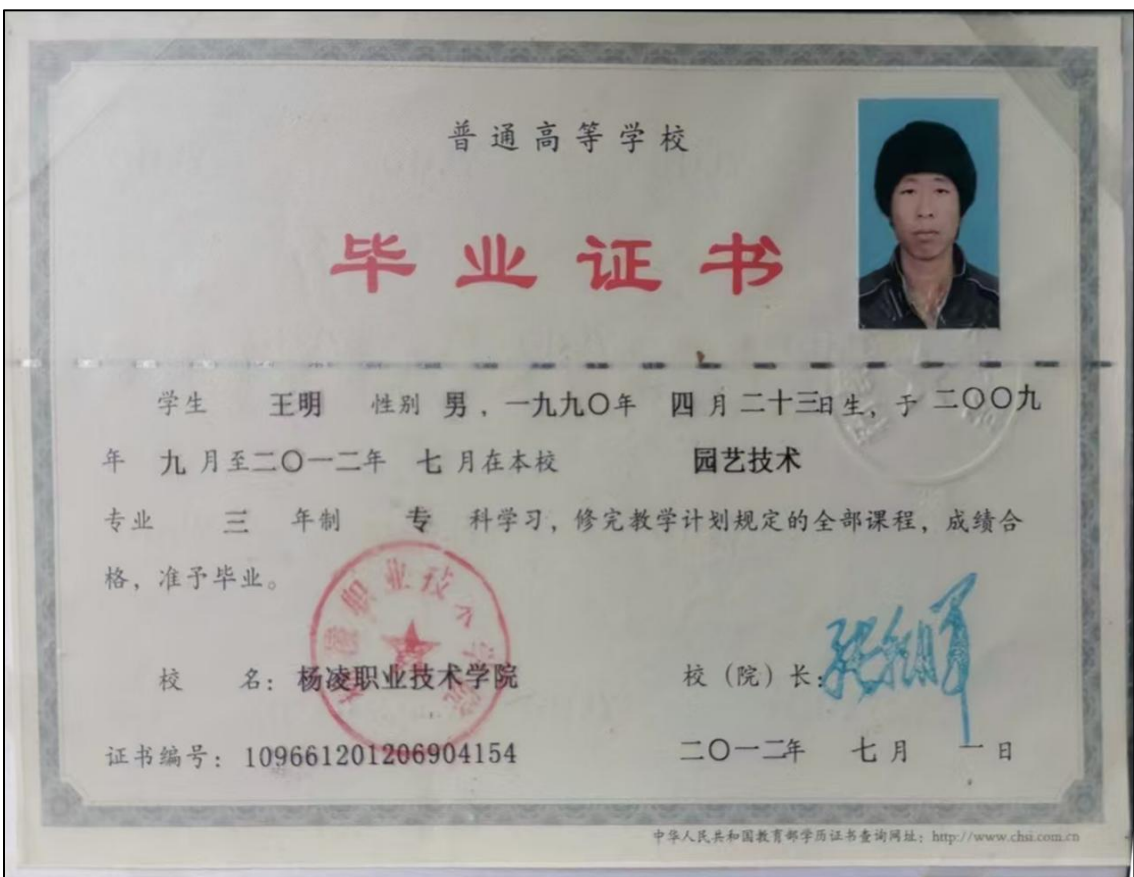 普通高等学校
毕业证书
学生 王明 性别 男，一九九〇年 四 月 二十三日生，于 二〇〇九
年 九 月至二〇一二年 七 月在本校 园艺技术
专业 三 年制 专 科学习，修完教学计划规定的全部课程，成绩合
格，准予毕业。
校 名：杨凌职业技术学院 校（院）长：
证书编号：109661201206904154 二〇一二年 七 月 一 日
杨凌职业技术学院
中华人民共和国教育部学历证书查询网址：http://www.chsi.com.cn